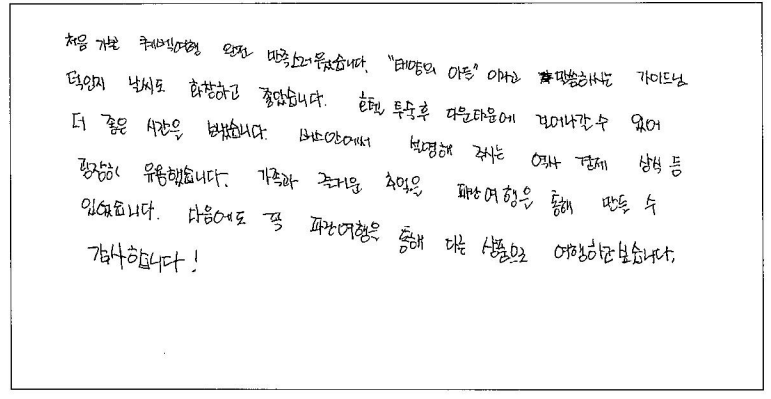 처음 가본 퀘벡여행 완전 만족스러웠습니다. "태양의 아들" 이라고 말씀하시는 가이드님
덕인지 날씨도 화창하고 좋았습니다. 호텔 투숙후 다운타운에 걸어나갈수 있어
더 좋은 시간을 보냈습니다. 버스안에서 설명해 주시는 역사 경제 상식 등
굉장히 유용했습니다. 가족과 즐거운 추억을 파란여행을 통해 만들 수
있었습니다. 다음에도 꼭 파란여행을 통해 다른 상품으로 여행하고 싶습니다.
감사합니다!